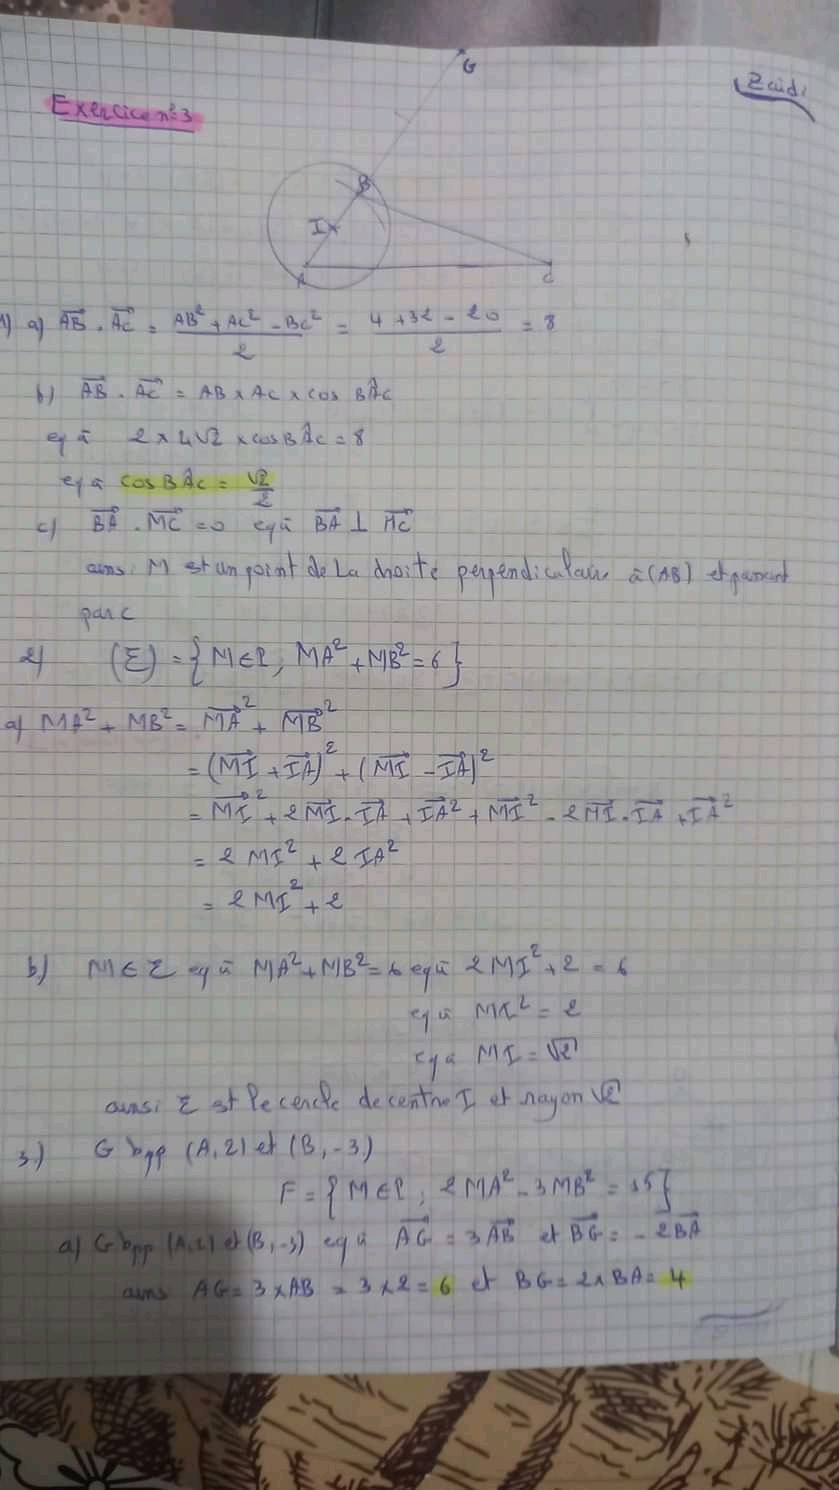 G
Zaidi
Exercice n°3
B
I
A C
1) a) AB⃗ . AC⃗ = (AB² + AC² - BC²)/2 = (4 + 32 - 20)/2 = 8
b) AB⃗ . AC⃗ = AB × AC × cos BÂC
eq à 2 × 4√2 × cos BÂC = 8
eq à cos BÂC = √2/2
c) BA⃗ . MC⃗ = 0 eq à BA⃗ ⊥ MC⃗
ainsi M est un point de La droite perpendiculaire à (AB) et passant
par C
2) (Σ) = {M ∈ P, MA² + MB² = 6}
a) MA² + MB² = MA⃗² + MB⃗²
= (MI⃗ + IA⃗)² + (MI⃗ - IA⃗)²
= MI⃗² + 2MI⃗.IA⃗ + IA⃗² + MI⃗² - 2MI⃗.IA⃗ + IA⃗²
= 2MI² + 2IA²
= 2MI² + 2
b) M ∈ Σ eq à MA² + MB² = 6 eq à 2MI² + 2 = 6
eq à MI² = 2
eq à MI = √2
ainsi Σ est le cercle de centre I et rayon √2
3.) G bpp (A,2) et (B,-3)
F = {M ∈ P, 2MA² - 3MB² = 15}
a) G bpp (A,2) et (B,-3) eq à AG⃗ = 3AB⃗ et BG⃗ = -2BA⃗
ains AG = 3 × AB = 3 × 2 = 6 et BG = 2 × BA = 4